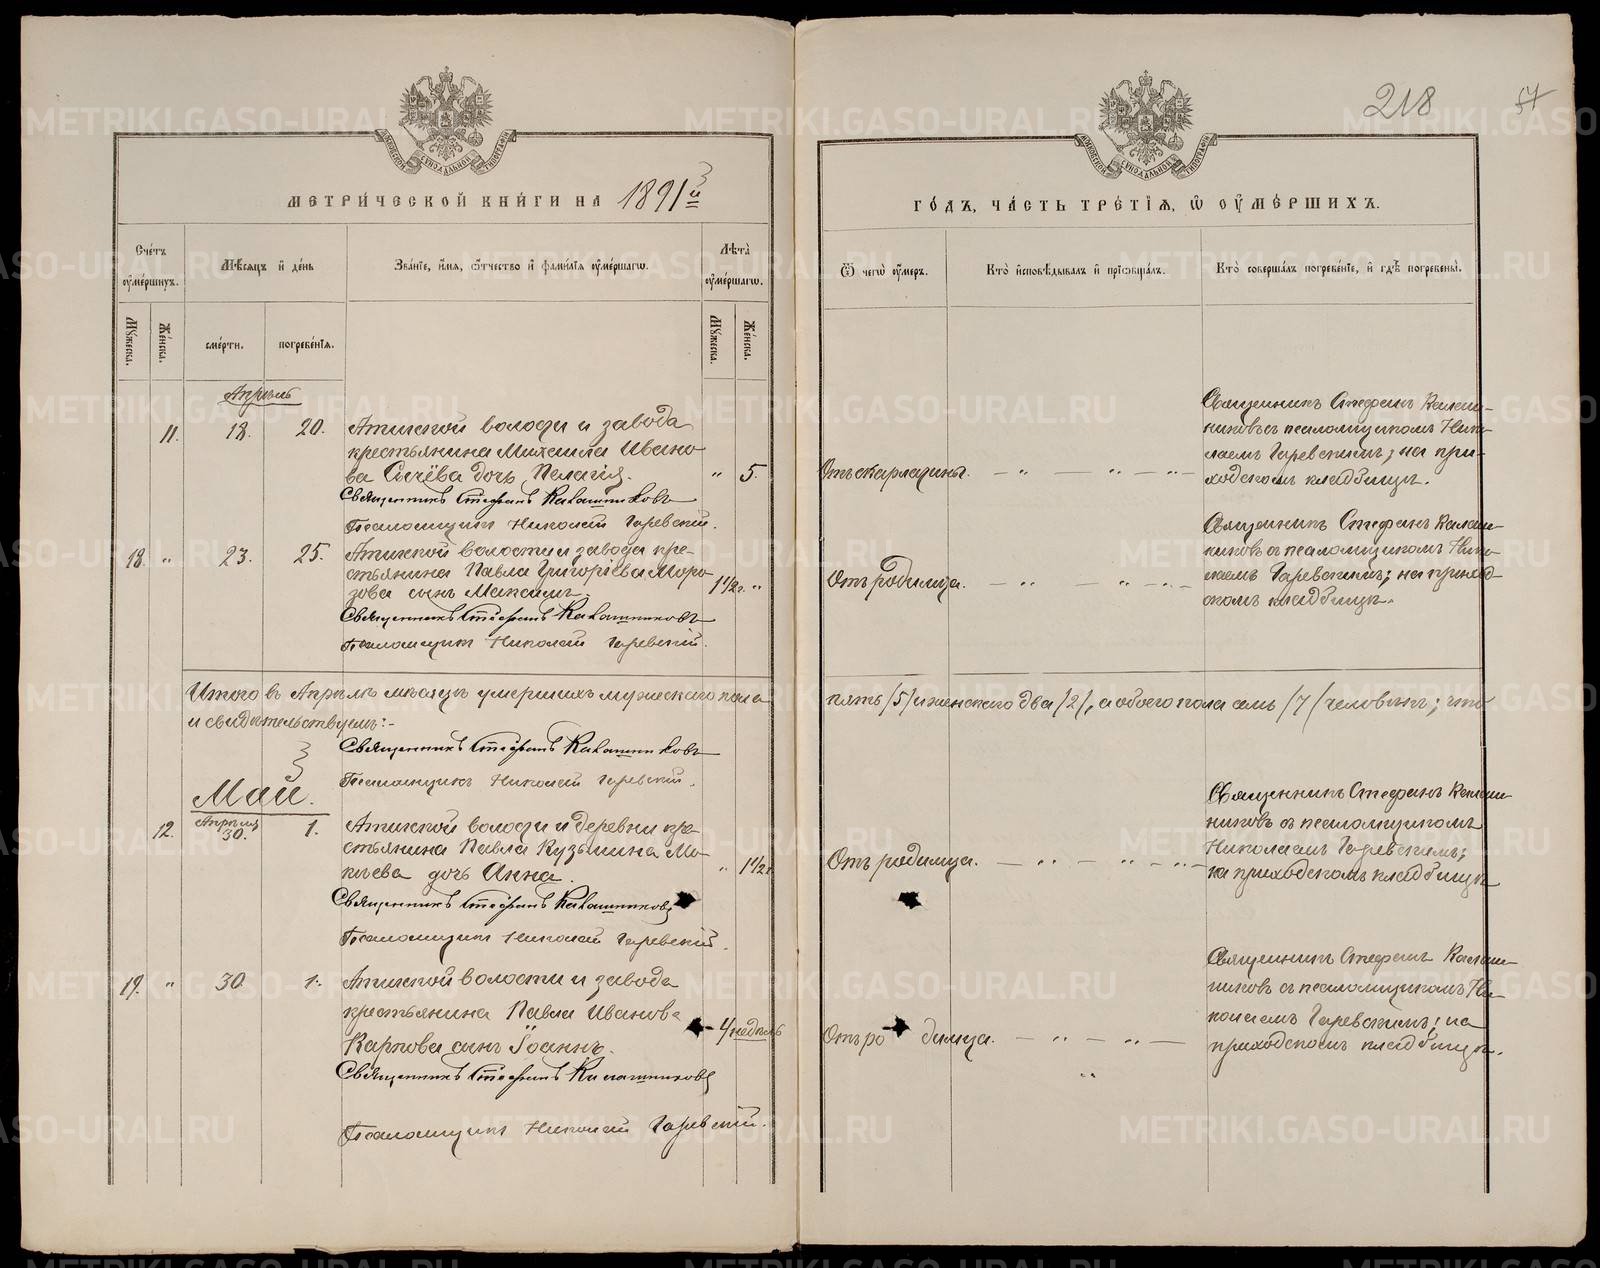 218
57
МЕТРИ́ЧЕСКОЙ КНИ́ГИ НА 1891й
ГО́ДЪ, ЧА́СТЬ ТРЕ́ТІѦ, Ѡ ОУМЕ́РШИХЪ.
Сче́тъ оумершихъ.
Мѣ́сяцъ и де́нь
Зва́ніе, и́мя, о́тчество и фами́лія оуме́ршагѡ.
Лѣ́та оуме́ршагѡ.
Ѿ чегѡ̀ оу́меръ.
Кто̀ исповѣ́дывалъ и пріѡбща́лъ.
Кто̀ соверша́лъ погребе́ніе, и гдѣ̀ погребены̀.
Мꙋ́жеска.
Же́нска.
сме́рти.
погребе́нія.
Мꙋ́жеска.
Же́нска.
Апрѣль
11. 18. 20. Атигской волости и завода
крестьянина Михаила Ивано-
ва Сычёва дочь Пелагія. " 5.
Священникъ Стефанъ Калашниковъ
Псаломщикъ Николай Гаревскій.
Отъ скарлатины.
Священникъ Стефанъ Калаш-
никовъ съ псаломщикомъ Нико-
лаемъ Гаревскимъ; на при-
ходскомъ кладбищѣ.
18. " 23. 25. Атигской волости и завода кре-
стьянина Павла Григоріева Моро-
зова сынъ Максимъ. 1 1/2 г. "
Священникъ Стефанъ Калашниковъ
Псаломщикъ Николай Гаревскій.
Отъ родимца.
Священникъ Стефанъ Калаш-
никовъ съ псаломщикомъ Нико-
лаемъ Гаревскимъ; на приход-
скомъ кладбищѣ.
Итого въ Апрѣлѣ мѣсяцѣ умершихъ мужескаго пола
пять /5/ и женскаго два /2/, а обоего пола семь /7/ человѣкъ; что
и свидѣтельствуемъ:-
Священникъ Стефанъ Калашниковъ
Псаломщикъ Николай Гаревскій.
Май.
12. Апрѣля 30. 1. Атигской волости и деревни кре-
стьянина Павла Кузьмина Мо-
кѣева дочь Анна. " 1 1/2 г.
Священникъ Стефанъ Калашниковъ
Псаломщикъ Николай Гаревскій.
Отъ родимца.
Священникъ Стефанъ Калаш-
никовъ съ псаломщикомъ
Николаемъ Гаревскимъ;
на приходскомъ кладбищѣ
19. " 30. 1. Атигской волости и завода
крестьянина Павла Иванова
Карпова сынъ Іоаннъ. 4 недѣль
Священникъ Стефанъ Калашниковъ
Псаломщикъ Николай Гаревскій.
Отъ родимца.
Священникъ Стефанъ Калаш-
никовъ съ псаломщикомъ Ни-
колаемъ Гаревскимъ; на
приходскомъ кладбищѣ.
METRIKI.GASO-URAL.RU